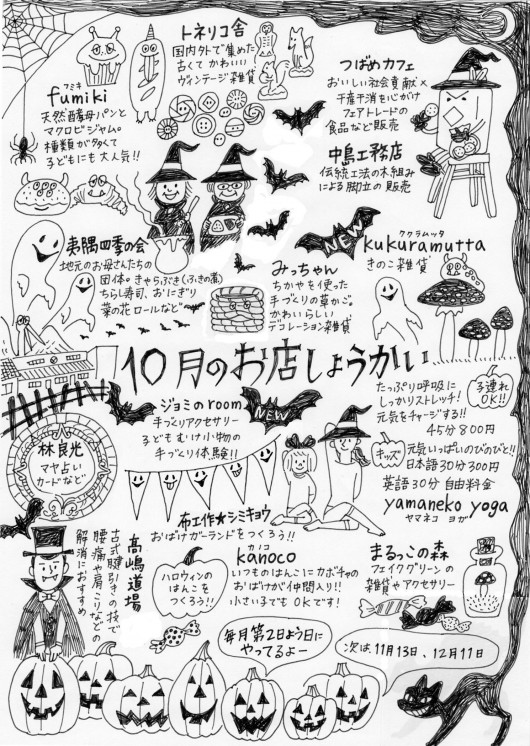 トネリコ舎
国内外で集めた
古くてかわいい
ヴィンテージ雑貨
つばめカフェ
おいしい社会貢献×
千産千消を心がけ
フェアトレードの
食品など販売
フミキ
fumiki
天然酵母パンと
マクロビジャム。
種類が多くて
子どもにも大人気!!
中島工務店
伝統工法の木組み
による脚立の販売
夷隅四季の会
地元のお母さんたちの
団体。きゃらぶき(ふきの葉)
ちらし寿司、おにぎり
菜の花ロールなど
みっちゃん
ちがやを使った
手づくりの草かご。
かわいらしい
デコレーション雑貨
NEW
ククラムッタ
kukuramutta
きのこ雑貨
10月のお店しょうかい
ジョミのroom
手づくりアクセサリー
子どもむけ小物の
手づくり体験!!
NEW
たっぷり呼吸に
しっかりストレッチ!
元気をチャージする!!
45分800円
子連れ
OK!!
キッズ
元気いっぱいのびのびと!!
日本語30分300円
英語30分 自由料金
yamaneko yoga
ヤマネコ ヨガ
林良光
マヤ占い
カードなど
布工作★シミキョウ
おばけガーランドをつくろう!!
高嶋道場
古式腱引きの技で
腰痛や肩こりなどの
解消におすすめ。
ハロウィンの
はんこを
つくろう!!
カノコ
kanoco
いつものはんこにカボチャの
おばけが仲間入り!!
小さい子でもOKです!
まるっこの森
フェイクグリーンの
雑貨やアクセサリー
毎月第2日よう日に
やってるよー
次は11月13日、12月11日